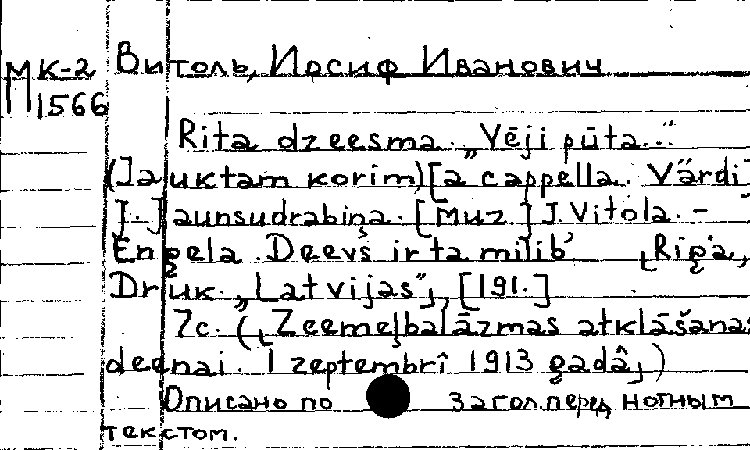 МК-2 Витоль, Иосиф Иванович
1566
Rita dzeesma. „Vēji pūta..."
(Jauktam korim) [a cappella. Värdi]
J.[.] Jaunsudrabiņa. [Муз.] J. Vitola. –
Enģela. Deevš ir ta milib' [Riga,
Druk. „Latvijas", [191.]
7c. ([Zeemeļbalāzmas atklāšanas
deenai. 1 zeptembrî 1913 gadâ])
Описано по загол. перед нотным
текстом.